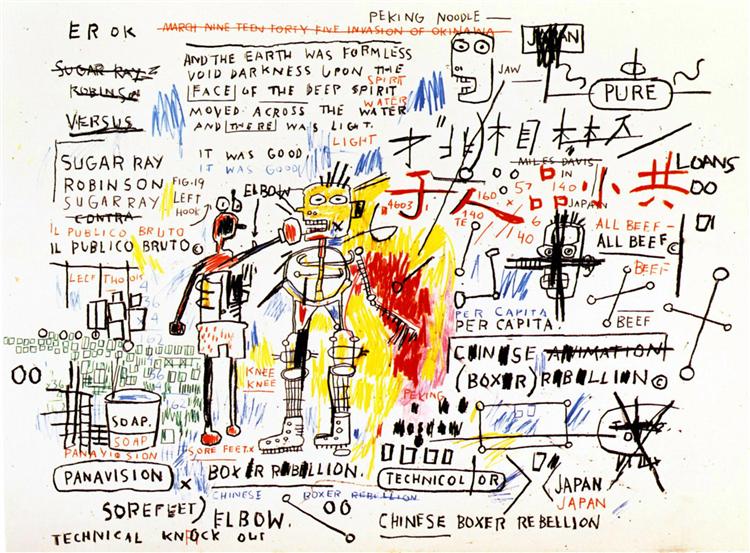 PEKING NOODLE —
EROK
MARCH NINE TEEN FORTY FIVE INVASION OF OKINAWA
JAPAN
SUGAR RAY
ROBINSON
VERSUS
AND THE EARTH WAS FORMLESS
VOID DARKNESS UPON THE
SPIRIT
FACE OF THE DEEP SPIRIT
WATER
MOVED ACROSS THE WATER
AND THERE WAS LIGHT.
LIGHT
IT WAS GOOD,
IT WAS GOOD,
JAW
PURE
SUGAR RAY
ROBINSON
SUGAR RAY
CONTRA
IL PUBLICO BRUTO
IL PUBLICO BRUTO©
FIG.19
LEFT
HOOK
ELBOW
MILES DAVIS
IN
JAPAN
于人品小共
LOANS
4603
160
57
140
x
6
140
TE
140
ALL BEEF —
ALL BEEF©
BEEF
BEEF
PER CAPITA
PER CAPITA.
CHINESE ANIMATION
(BOXER) REBELLION©
KNEE
KNEE
PEKING
SOAP.
SOAP
PANAVISION
PANAVISION
SORE FEET.X
x BOXER REBELLION.
TECHNICOLOR
CHINESE BOXER REBELLION
JAPAN
JAPAN
SOREFEET)
ELBOW.
CHINESE BOXER REBELLION
TECHNICAL KNOCK OUT